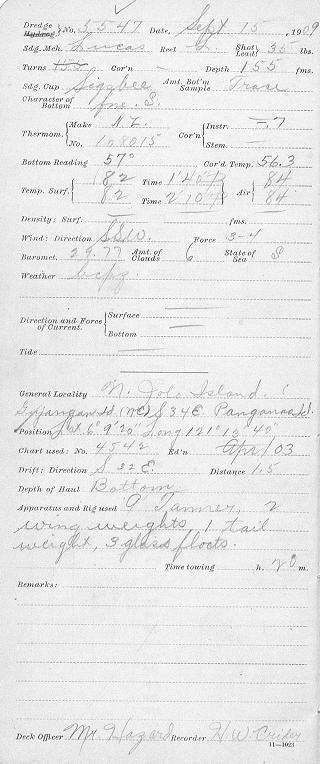 Dredge Hydrog. No. 5547 Date, Sept 15, 1909
Sdg. Mch. Lucas Reel 2 Shot Lead 35 lbs.
Turns 153 Cor'n — Depth 155 fms.
Sdg. Cup Sigsbee Amt. Bot'm Sample Trace
Character of Bottom fne. S.
Thermom. Make N.Z. Cor'n Instr. —.7
No. 108015 Stem. —
Bottom Reading 57° Cor'd Temp. 56.3
Temp. Surf. 82 Time 1 40 Air 84
82 Time 2 10 84
Density: Surf. — fms.
Wind: Direction SSW. Force 3-4
Baromet. 29.77 Amt. of Clouds 6 State of Sea S
Weather bcpq
Direction and Force of Current. Surface —
Bottom —
Tide —
General Locality N. Jolo Island. (
Id. (NE) S 34 E.
Position Lat 6° 9' 20" Long 121° 13' 40"
Chart used: No. 4542 Ed'n Apr/03
Drift: Direction S 32 E. Distance 1.5
Depth of Haul Bottom
Apparatus and Rig used 9' Tanner, 2
wing weights, 1 tail
weight, 3 glass floats.
Time towing h. 20 m.
Remarks:
Deck Officer Mr. Hazard Recorder H.W. Crider
11—1023